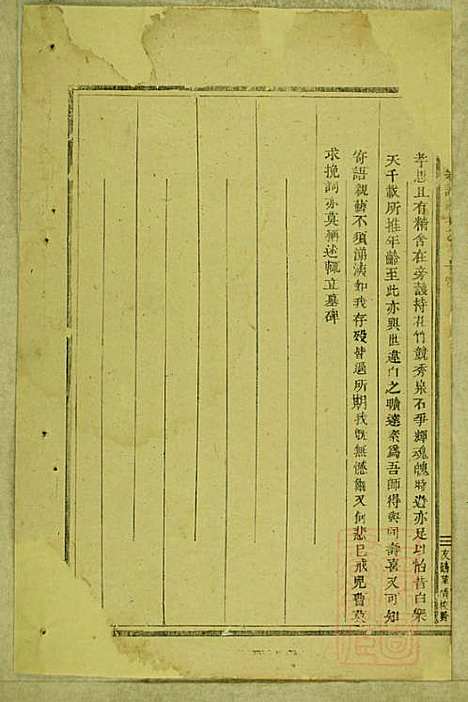 孝思且有精舍在旁護持花竹競秀泉石爭輝魂魄時遊亦足以怡昔白樂
天千載所推年齡至此亦與世違白之曠達素爲吾師得與同壽喜又可知
寄語親舊不須涕洟如我存歿皆過所期我旣無憾爾又何悲已戒兒曹莫
求挽詞亦莫稱述輒立墓碑